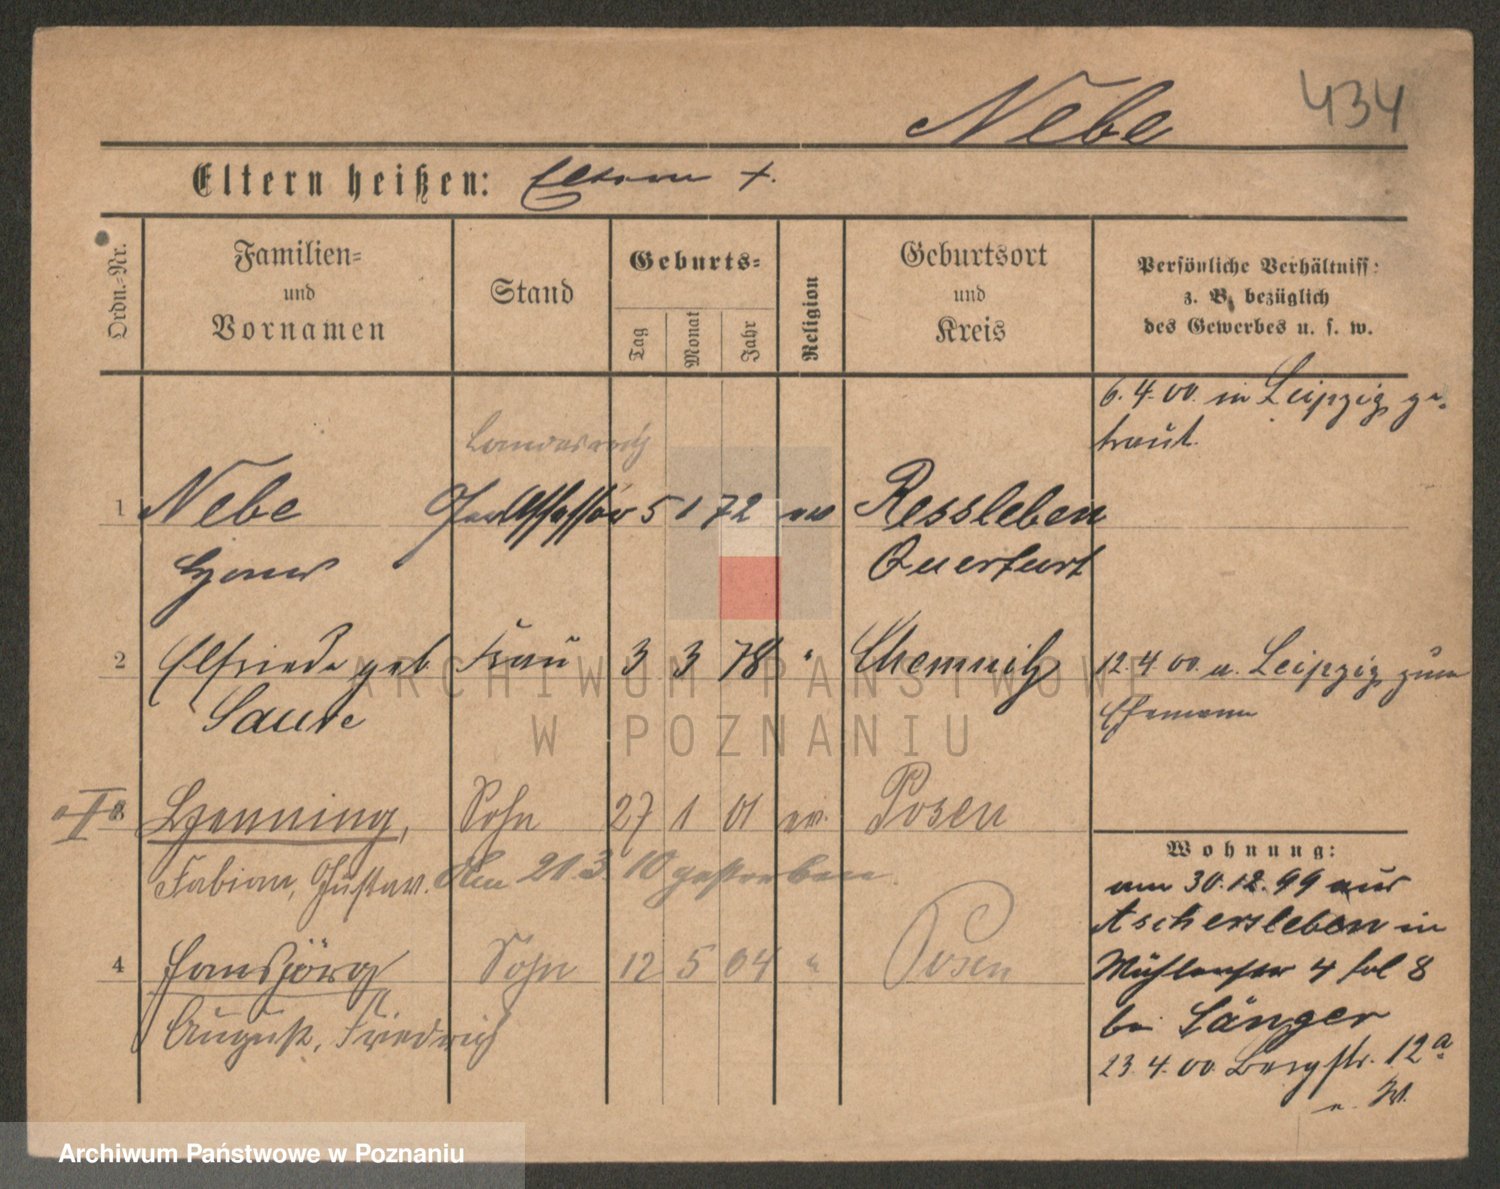 434
Nebe
Eltern heißen: Eltern †.
Ordn.-Nr.
Familien-
und
Vornamen
Stand
Geburts-
Tag
Monat
Jahr
Religion
Geburtsort
und
Kreis
Persönliche Verhältniss:
z. B. bezüglich
des Gewerbes u. s. w.
6.4.00. in Leipzig ge-
traut.
Landesrath
1 Nebe 5 1 72 ev Ressleben
Hans Querfurt
2 Elfriede geb Frau 3 3 78 " Chemnitz 12.4.00 a. Leipzig zum
Ehemann
3 Henning, Sohn 27 1 01 ev. Posen
Fabian, Gustav. Am 21.3.10 gestorben.
4 Hansjörg Sohn 12 5 04 " Posen
August, Friedrich
Wohnung:
am 30.12.99 aus
Aschersleben in
Mühlenstr 4 bei Sänger
23.4.00 Bergstr. 12a
ARCHIWUM PAŃSTWOWE
W POZNANIU
Archiwum Państwowe w Poznaniu